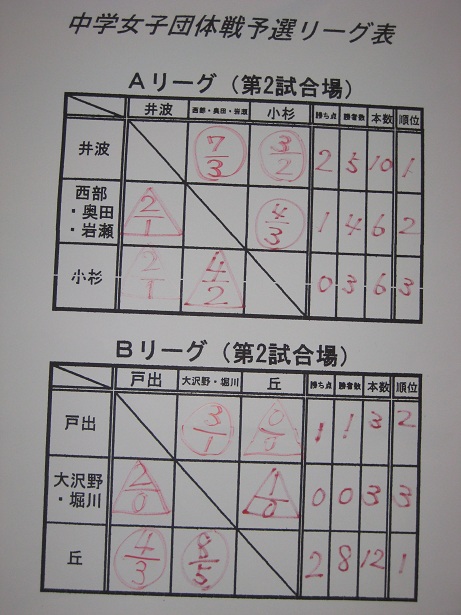 中学女子団体戦予選リーグ表
Aリーグ（第2試合場）
井波 西部・奥田・岩瀬 小杉 勝ち点 勝者数 本数 順位
井波 7/3 3/2 2 5 10 1
西部
・奥田
・岩瀬 2/1 4/3 1 4 6 2
小杉 2/1 4/2 0 3 6 3
Bリーグ（第2試合場）
戸出 大沢野・堀川 丘 勝ち点 勝者数 本数 順位
戸出 3/1 0/0 1 1 3 2
大沢野
・堀川 2/0 1/0 0 0 3 3
丘 4/3 8/5 2 8 12 1